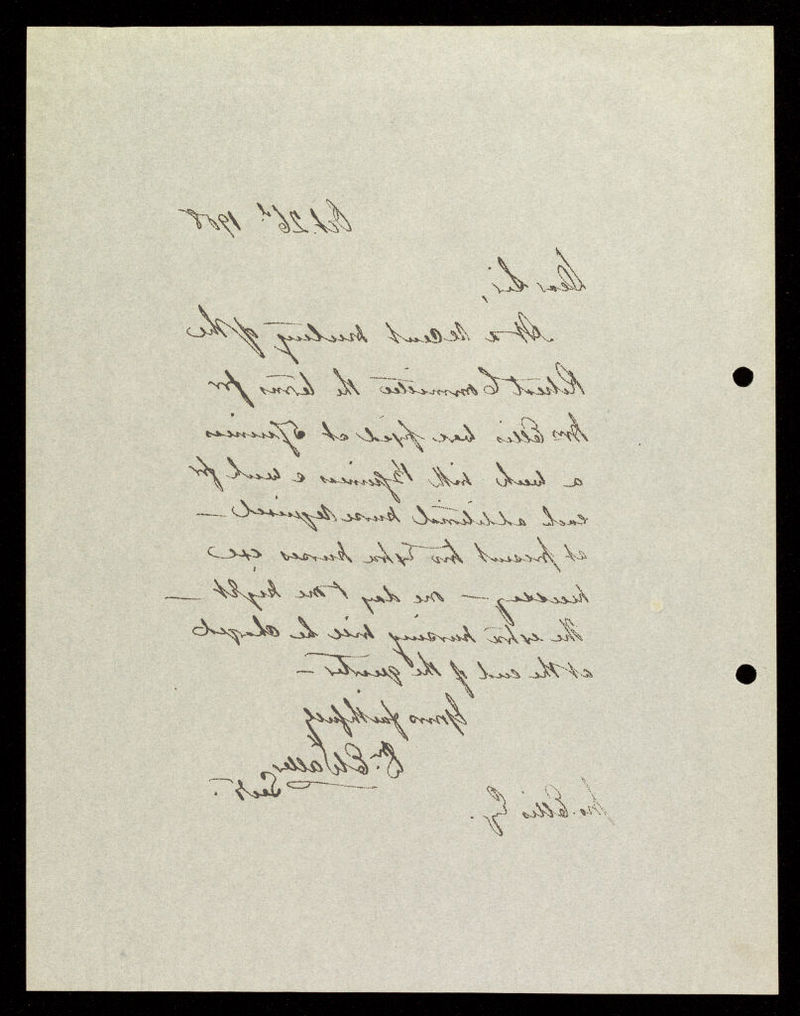 Oct. 26th 1908
Dear Sir,
At a recent meeting of the
Retreat Committee the terms for
Mrs Ellis was fixed at 5 guineas
a week with 1½ guineas a week for
each additional nurse required —
at present two extra nurses are
necessary — one day & one night —
The extra nursing will be charged
at the end of the quarter —
Yours faithfully
Waller
Secy.
Jno. Ellis Esq.